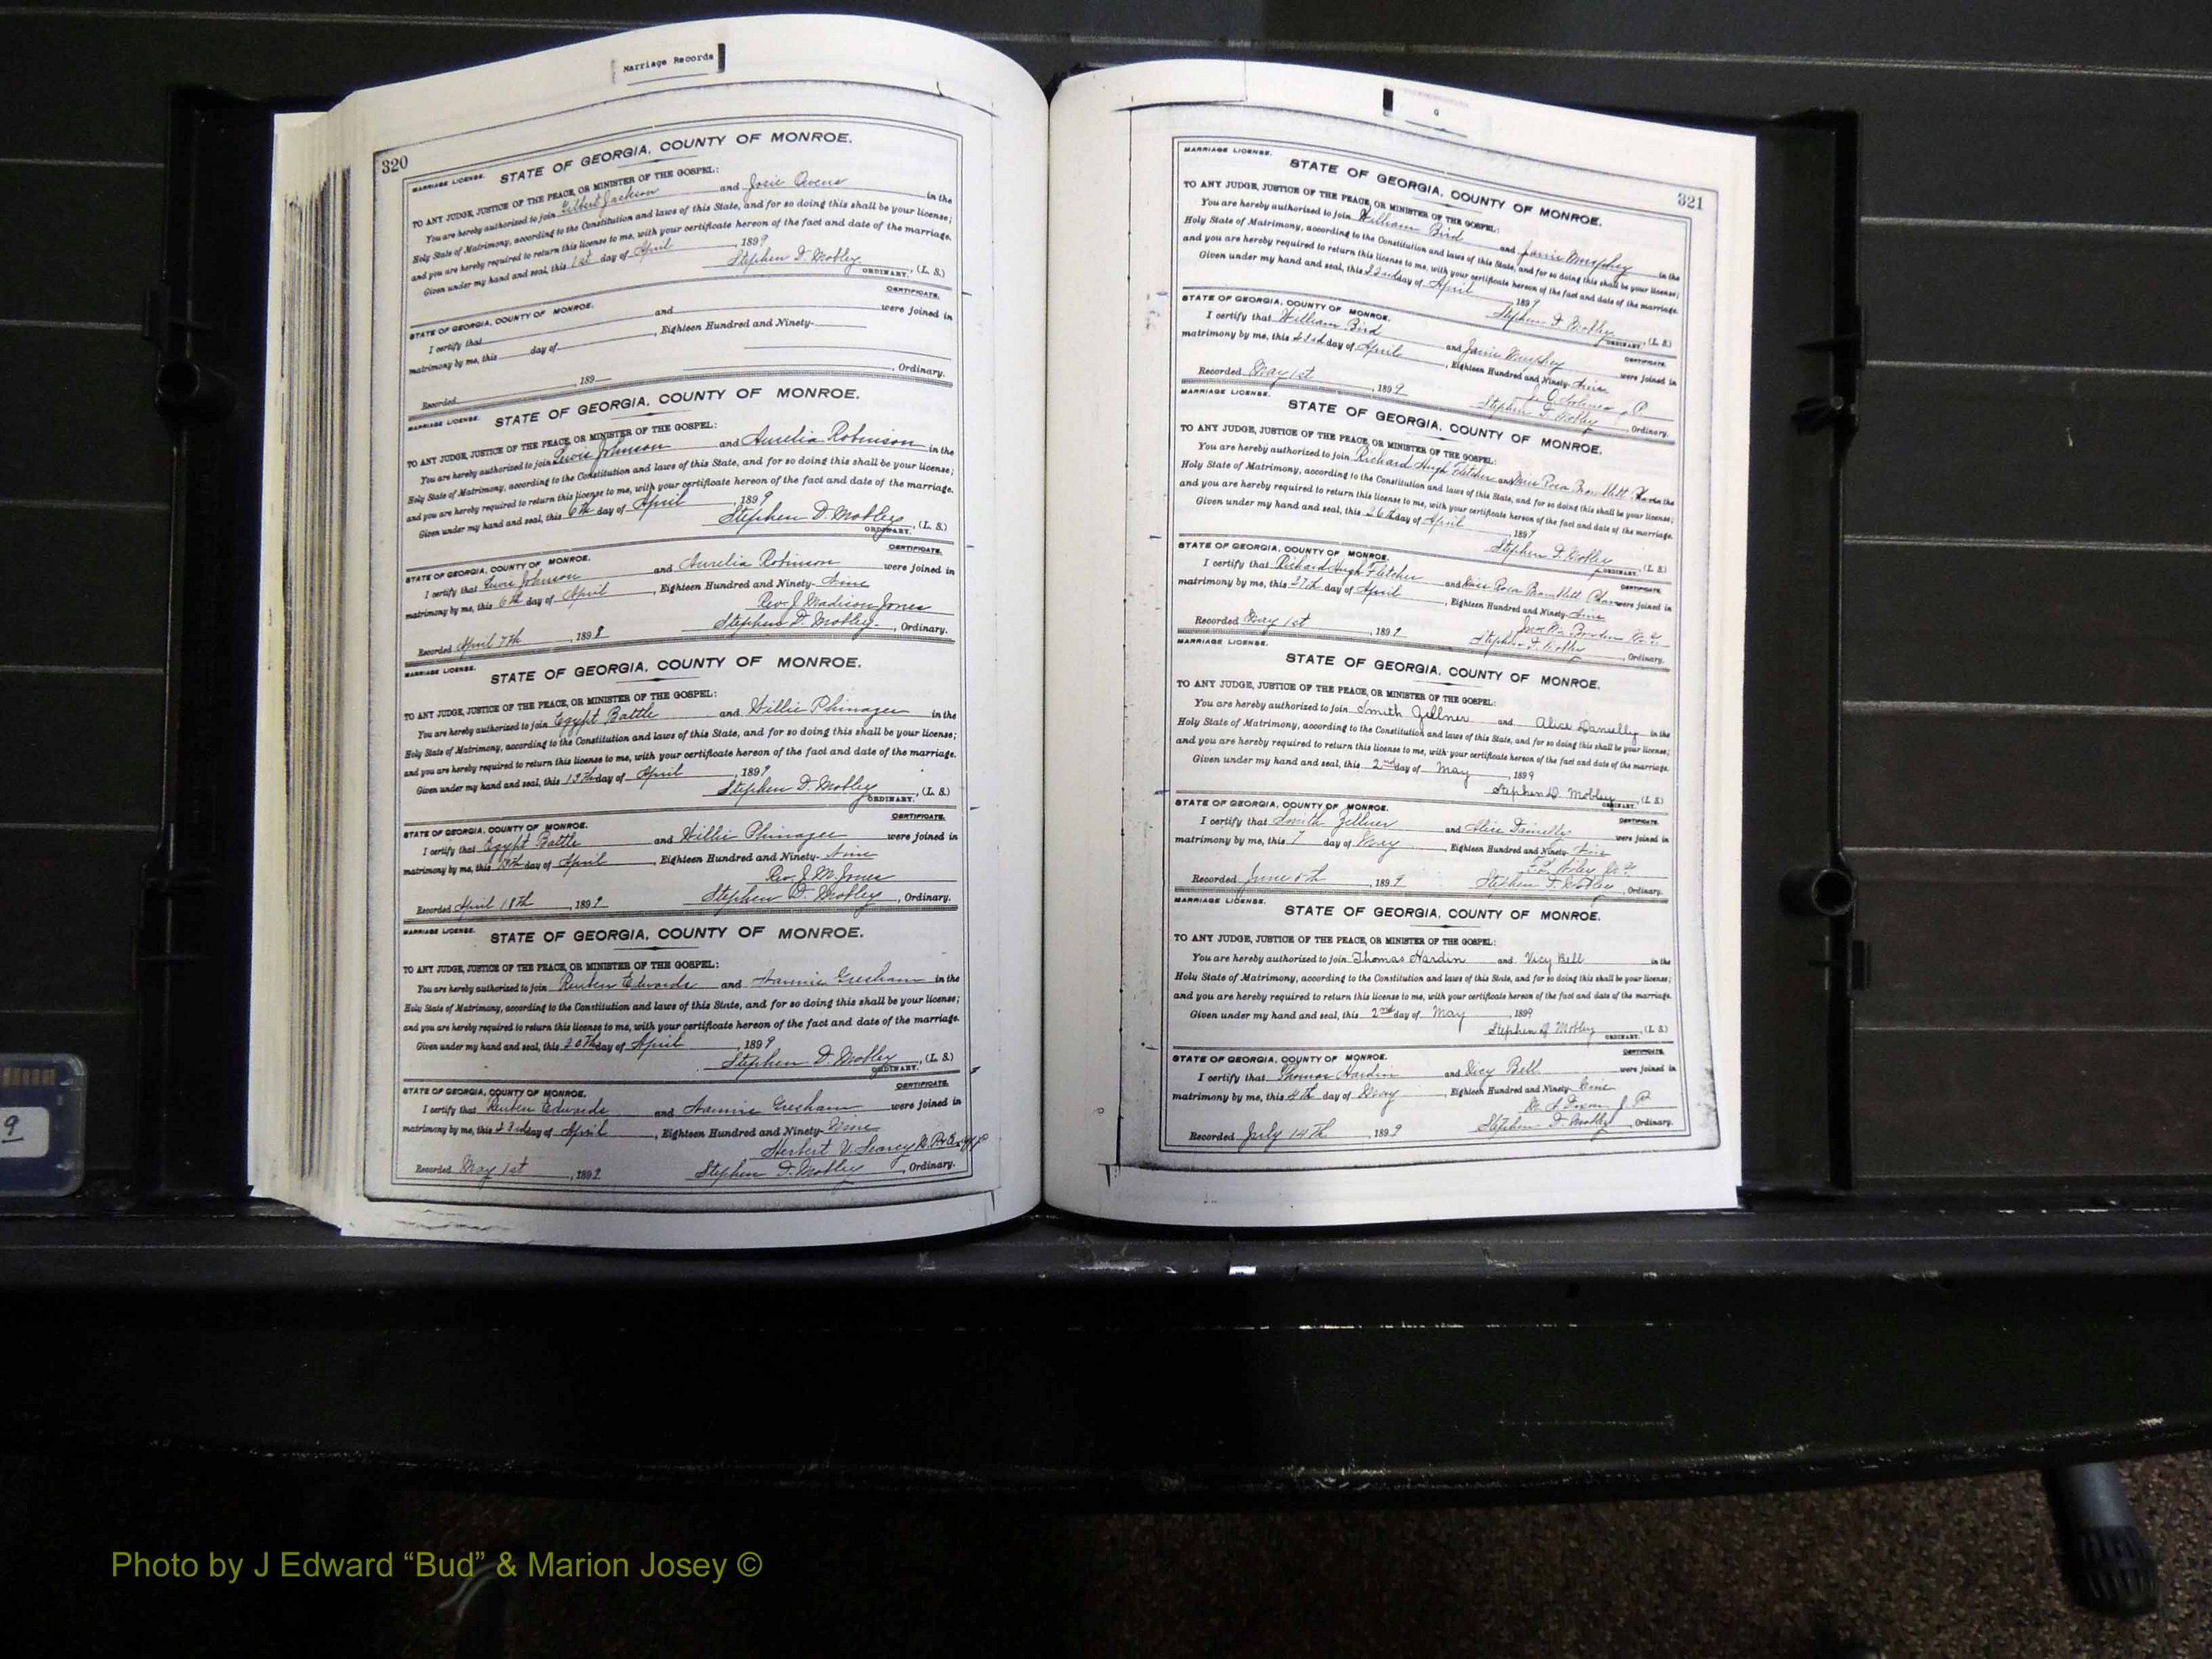 Marriage Records
320
MARRIAGE LICENSE. STATE OF GEORGIA, COUNTY OF MONROE.
TO ANY JUDGE, JUSTICE OF THE PEACE, OR MINISTER OF THE GOSPEL:
You are hereby authorized to join Gilbert Jackson and Josie Owens in the
Holy State of Matrimony, according to the Constitution and laws of this State, and for so doing this shall be your license;
and you are hereby required to return this license to me, with your certificate hereon of the fact and date of the marriage.
Given under my hand and seal, this 1st day of April, 1899
Stephen D. Mobley, (L. S.)
ORDINARY.
CERTIFICATE.
STATE OF GEORGIA, COUNTY OF MONROE.
I certify that and were joined in
matrimony by me, this day of , Eighteen Hundred and Ninety-
Recorded , 189 , Ordinary.
MARRIAGE LICENSE. STATE OF GEORGIA, COUNTY OF MONROE.
TO ANY JUDGE, JUSTICE OF THE PEACE, OR MINISTER OF THE GOSPEL:
You are hereby authorized to join Lewis Johnson and Aurelia Robinson in the
Holy State of Matrimony, according to the Constitution and laws of this State, and for so doing this shall be your license;
and you are hereby required to return this license to me, with your certificate hereon of the fact and date of the marriage.
Given under my hand and seal, this 6th day of April, 1899
Stephen D. Mobley, (L. S.)
ORDINARY.
CERTIFICATE.
STATE OF GEORGIA, COUNTY OF MONROE.
I certify that Lewis Johnson and Aurelia Robinson were joined in
matrimony by me, this 6th day of April, Eighteen Hundred and Ninety-Nine
Rev. J. Madison Jones
Recorded April 7th, 1899 Stephen D. Mobley, Ordinary.
MARRIAGE LICENSE. STATE OF GEORGIA, COUNTY OF MONROE.
TO ANY JUDGE, JUSTICE OF THE PEACE, OR MINISTER OF THE GOSPEL:
You are hereby authorized to join Egypt Battle and Willie Phinazee in the
Holy State of Matrimony, according to the Constitution and laws of this State, and for so doing this shall be your license;
and you are hereby required to return this license to me, with your certificate hereon of the fact and date of the marriage.
Given under my hand and seal, this day of April, 1899
Stephen D. Mobley, (L. S.)
ORDINARY.
CERTIFICATE.
STATE OF GEORGIA, COUNTY OF MONROE.
I certify that Egypt Battle and Willie Phinazee were joined in
matrimony by me, this day of April, Eighteen Hundred and Ninety-Nine
Rev. J. M. Jones
Recorded April 18th, 1899 Stephen D. Mobley, Ordinary.
MARRIAGE LICENSE. STATE OF GEORGIA, COUNTY OF MONROE.
TO ANY JUDGE, JUSTICE OF THE PEACE, OR MINISTER OF THE GOSPEL:
You are hereby authorized to join Reuben Edwards and Fannie Gresham in the
Holy State of Matrimony, according to the Constitution and laws of this State, and for so doing this shall be your license;
and you are hereby required to return this license to me, with your certificate hereon of the fact and date of the marriage.
Given under my hand and seal, this 20th day of April, 1899
Stephen D. Mobley, (L. S.)
ORDINARY.
CERTIFICATE.
STATE OF GEORGIA, COUNTY OF MONROE.
I certify that Reuben Edwards and Fannie Gresham were joined in
matrimony by me, this 23rd day of April, Eighteen Hundred and Ninety-Nine
Herbert V. Searcy
Recorded May 1st, 1899 Stephen D. Mobley, Ordinary.
321
MARRIAGE LICENSE. STATE OF GEORGIA, COUNTY OF MONROE.
TO ANY JUDGE, JUSTICE OF THE PEACE, OR MINISTER OF THE GOSPEL:
You are hereby authorized to join William Bird and Janie Murphey in the
Holy State of Matrimony, according to the Constitution and laws of this State, and for so doing this shall be your license;
and you are hereby required to return this license to me, with your certificate hereon of the fact and date of the marriage.
Given under my hand and seal, this 22nd day of April, 1899
Stephen D. Mobley, (L. S.)
ORDINARY.
CERTIFICATE.
STATE OF GEORGIA, COUNTY OF MONROE.
I certify that William Bird and Janie Murphey were joined in
matrimony by me, this day of April, Eighteen Hundred and Ninety-Nine
Recorded May 1st, 1899 Stephen D. Mobley, Ordinary.
MARRIAGE LICENSE. STATE OF GEORGIA, COUNTY OF MONROE.
TO ANY JUDGE, JUSTICE OF THE PEACE, OR MINISTER OF THE GOSPEL:
You are hereby authorized to join Richard Hugh Fletcher and Miss Rosa in the
Holy State of Matrimony, according to the Constitution and laws of this State, and for so doing this shall be your license;
and you are hereby required to return this license to me, with your certificate hereon of the fact and date of the marriage.
Given under my hand and seal, this 26th day of April, 1899
Stephen D. Mobley, (L. S.)
ORDINARY.
CERTIFICATE.
STATE OF GEORGIA, COUNTY OF MONROE.
I certify that Richard Hugh Fletcher and Miss Rosa were joined in
matrimony by me, this 27th day of April, Eighteen Hundred and Ninety-Nine
Recorded May 1st, 1899 Stephen D. Mobley, Ordinary.
MARRIAGE LICENSE.
STATE OF GEORGIA, COUNTY OF MONROE.
TO ANY JUDGE, JUSTICE OF THE PEACE, OR MINISTER OF THE GOSPEL:
You are hereby authorized to join Smith Zellner and Alice Danielly in the
Holy State of Matrimony, according to the Constitution and laws of this State, and for so doing this shall be your license;
and you are hereby required to return this license to me, with your certificate hereon of the fact and date of the marriage.
Given under my hand and seal, this 2nd day of May, 1899
Stephen D. Mobley, (L. S.)
ORDINARY.
CERTIFICATE.
STATE OF GEORGIA, COUNTY OF MONROE.
I certify that Smith Zellner and Alice Danielly were joined in
matrimony by me, this 7 day of May, Eighteen Hundred and Ninety-Nine
Recorded June, 1899 Stephen D. Mobley, Ordinary.
MARRIAGE LICENSE.
STATE OF GEORGIA, COUNTY OF MONROE.
TO ANY JUDGE, JUSTICE OF THE PEACE, OR MINISTER OF THE GOSPEL:
You are hereby authorized to join Thomas Hardin and Vicy Bell in the
Holy State of Matrimony, according to the Constitution and laws of this State, and for so doing this shall be your license;
and you are hereby required to return this license to me, with your certificate hereon of the fact and date of the marriage.
Given under my hand and seal, this 2nd day of May, 1899
Stephen D. Mobley, (L. S.)
ORDINARY.
CERTIFICATE.
STATE OF GEORGIA, COUNTY OF MONROE.
I certify that Thomas Hardin and Vicy Bell were joined in
matrimony by me, this 4th day of May, Eighteen Hundred and Ninety-Nine
Dixon J P
Recorded July 14th, 1899 Stephen D. Mobley, Ordinary.
9
Photo by J Edward “Bud” & Marion Josey ©